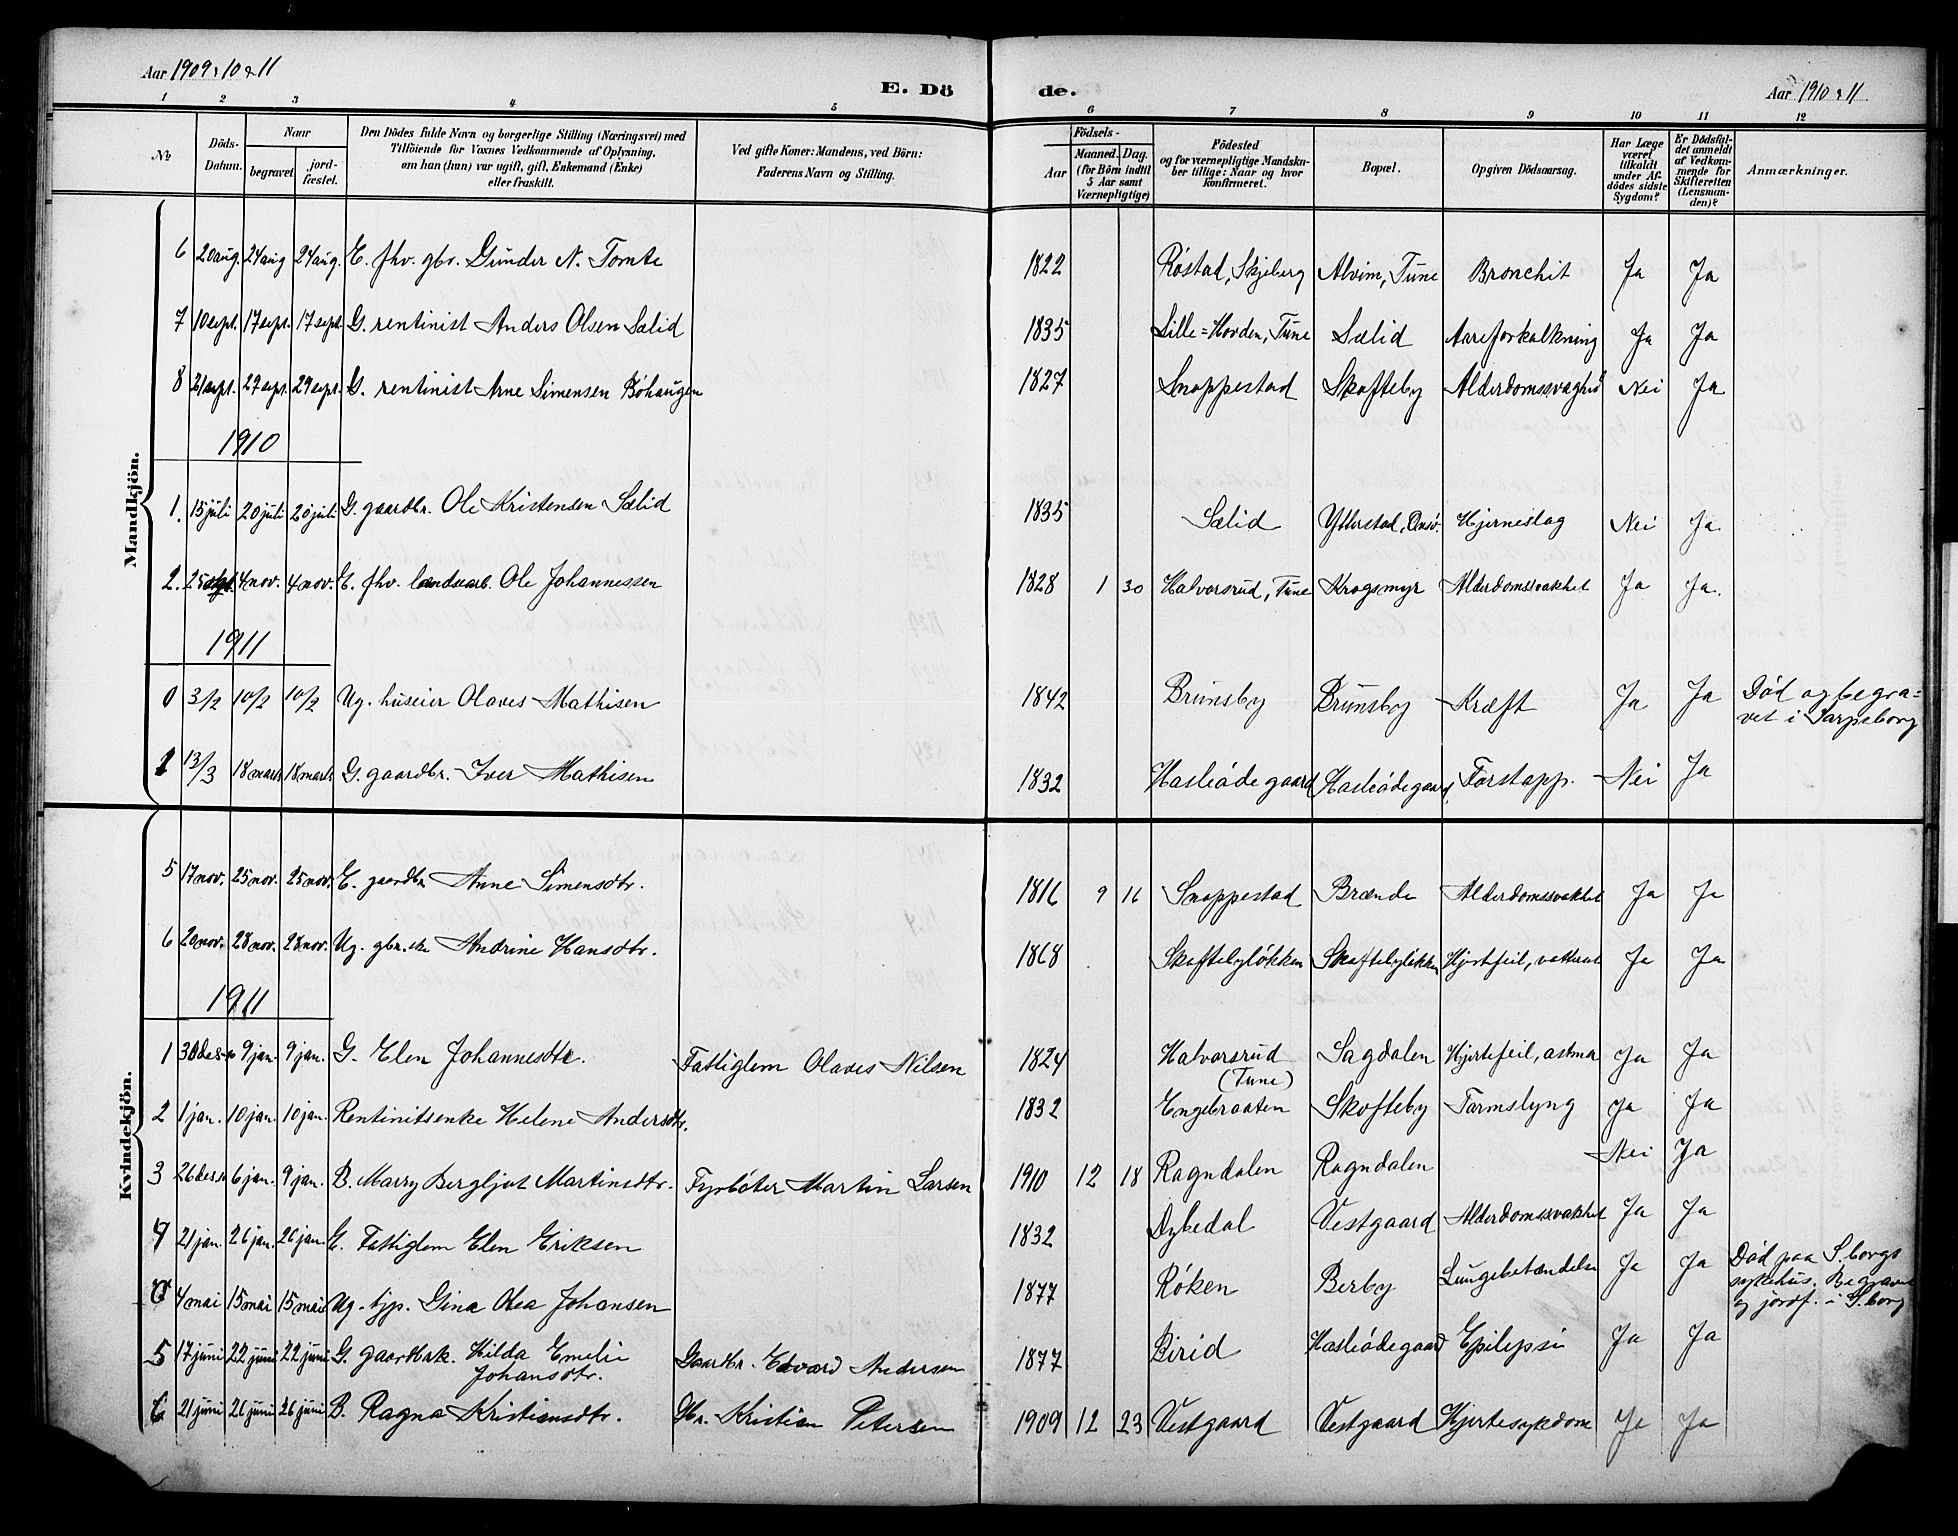 Aar 1909, 10 & 11
E. Dö
de.
Aar 1910 & 11
1 2 3 4 5 6 7 8 9 10 11 12
№
Döds-Datum.
Naar
begravet.
jord-fæstet.
Den Dödes fulde Navn og borgerlige Stilling (Næringsvei) med
Tilföiende for Voxnes Vedkommende af Oplysning,
om han (hun) var ugift, gift, Enkemand (Enke)
eller fraskilt.
Ved gifte Koner: Mandens, ved Börn:
Faderens Navn og Stilling.
Födsels-
Aar
Maaned. Dag.
(for Börn indtil
5 Aar samt
Værnepligtige)
Födested
og for værnepligtige Mandskn-
ber tillige: Naar og hvor
konfirmeret.
Bopæl.
Opgiven Dödsaarsag.
Har Læge
været
tilkaldt
under Af-
dödes sidste
Sygdom?
Er Dödsfal-
det anmeldt
af Vedkom-
mende for
Skifteretten
(Lensman-
den)?
Anmærkninger.
Mandkjön.
6 20 aug. 24 aug 24 aug. E. fhv. gbr. Gunder N. Tomte 1822 Røstad, Skjeberg Alvim, Tune Bronchit Ja Ja
7 10 sept. 17 sept. 17 sept. G. rentinist Anders Olsen Sælid 1835 Lille=Hovden, Tune Sælid Aareforkalkning Ja Ja
8 21 sept. 27 sept. 29 sept. G. rentinist Arne Simensen Bøhaugen 1827 Snoppestad Skofteby Alderdomssvaghed Nei Ja
1910
1. 15 juli 20 juli 20 juli G. gaardbr. Ole Kristensen Sælid 1835 Sælid Ytterstad, Onsø. Hjerneslag Nei Ja.
2. 25 4 nov. 4 nov. E. fhv. landvarb. Ole Johannessen 1828 1 30 Halvorsrud, Tune Krogsmyr Alderdomssvakhet Ja Ja.
1911
0 3/2 10/2 10/2 Ug. huseier Olaves Mathisen 1842 Brunsby Brunsby Kræft Ja Ja Død og begra=
vet i Sarpsborg
1 13/3 18 marts 18 marts G. gaardbr. Iver Mathisen 1832 Hasleødegaard Hasleødegaard Forstopp. Nei Ja
Kvindekjön.
5 17 nov. 25 nov. 25 nov. E. gaardbr. Anne Simensdtr. 1816 9 16 Snoppestad Brænde Alderdomssvakhet Ja Ja
6 20 nov. 28 nov. 28 nov. Ug. gbr. Andrine Hansdtr. 1868 Skoftebyløkken Skoftebyløkken Hjertfeil, vattersot Ja Ja
1911
1 30 des. 9 jan. 9 jan. G. Elen Johannesdtr. Fattiglem Olaves Nilsen 1824 Halvorsrud
(Tune) Sagdalen Hjertefeil, astma Ja Ja
2 1 jan. 10 jan. 10 jan. Rentinitsenke Helene Andersdtr. 1832 Engebraaten Skofteby Tarmslyng Ja Ja
3 26 des. 6 jan. 9 jan. B. Marry Bergljot Martinsdtr. Fyrbøter Martin Larsen 1910 12 18 Ragndalen Ragndalen Nei Ja
4 21 jan. 26 jan. 26 jan. E. Fattiglem Elen Eriksen 1832 Dybedal Vestgaard Alderdomssvakhet Ja Ja
0 4 mai 15 mai 15 mai Ug. tjp. Gina Olea Johansen 1877 Røken Berby Lungebetændelse Ja Ja Død paa S.borgs
sykehus. Begravet
og jordf. i S.borg
5 17 juni 22 juni 22 juni G. gaardbrk. Hilda Emelie
Johansdtr. Gaardbr. Edvard Andersen 1877 Birid Hasleødegaard Epilepsi Ja Ja
6 21 juni 26 juni 26 juni B. Ragna Kristiansdtr. Gbr. Kristian Petersen 1909 12 23 Vestgaard Vestgaard Hjertesykdom Ja Ja